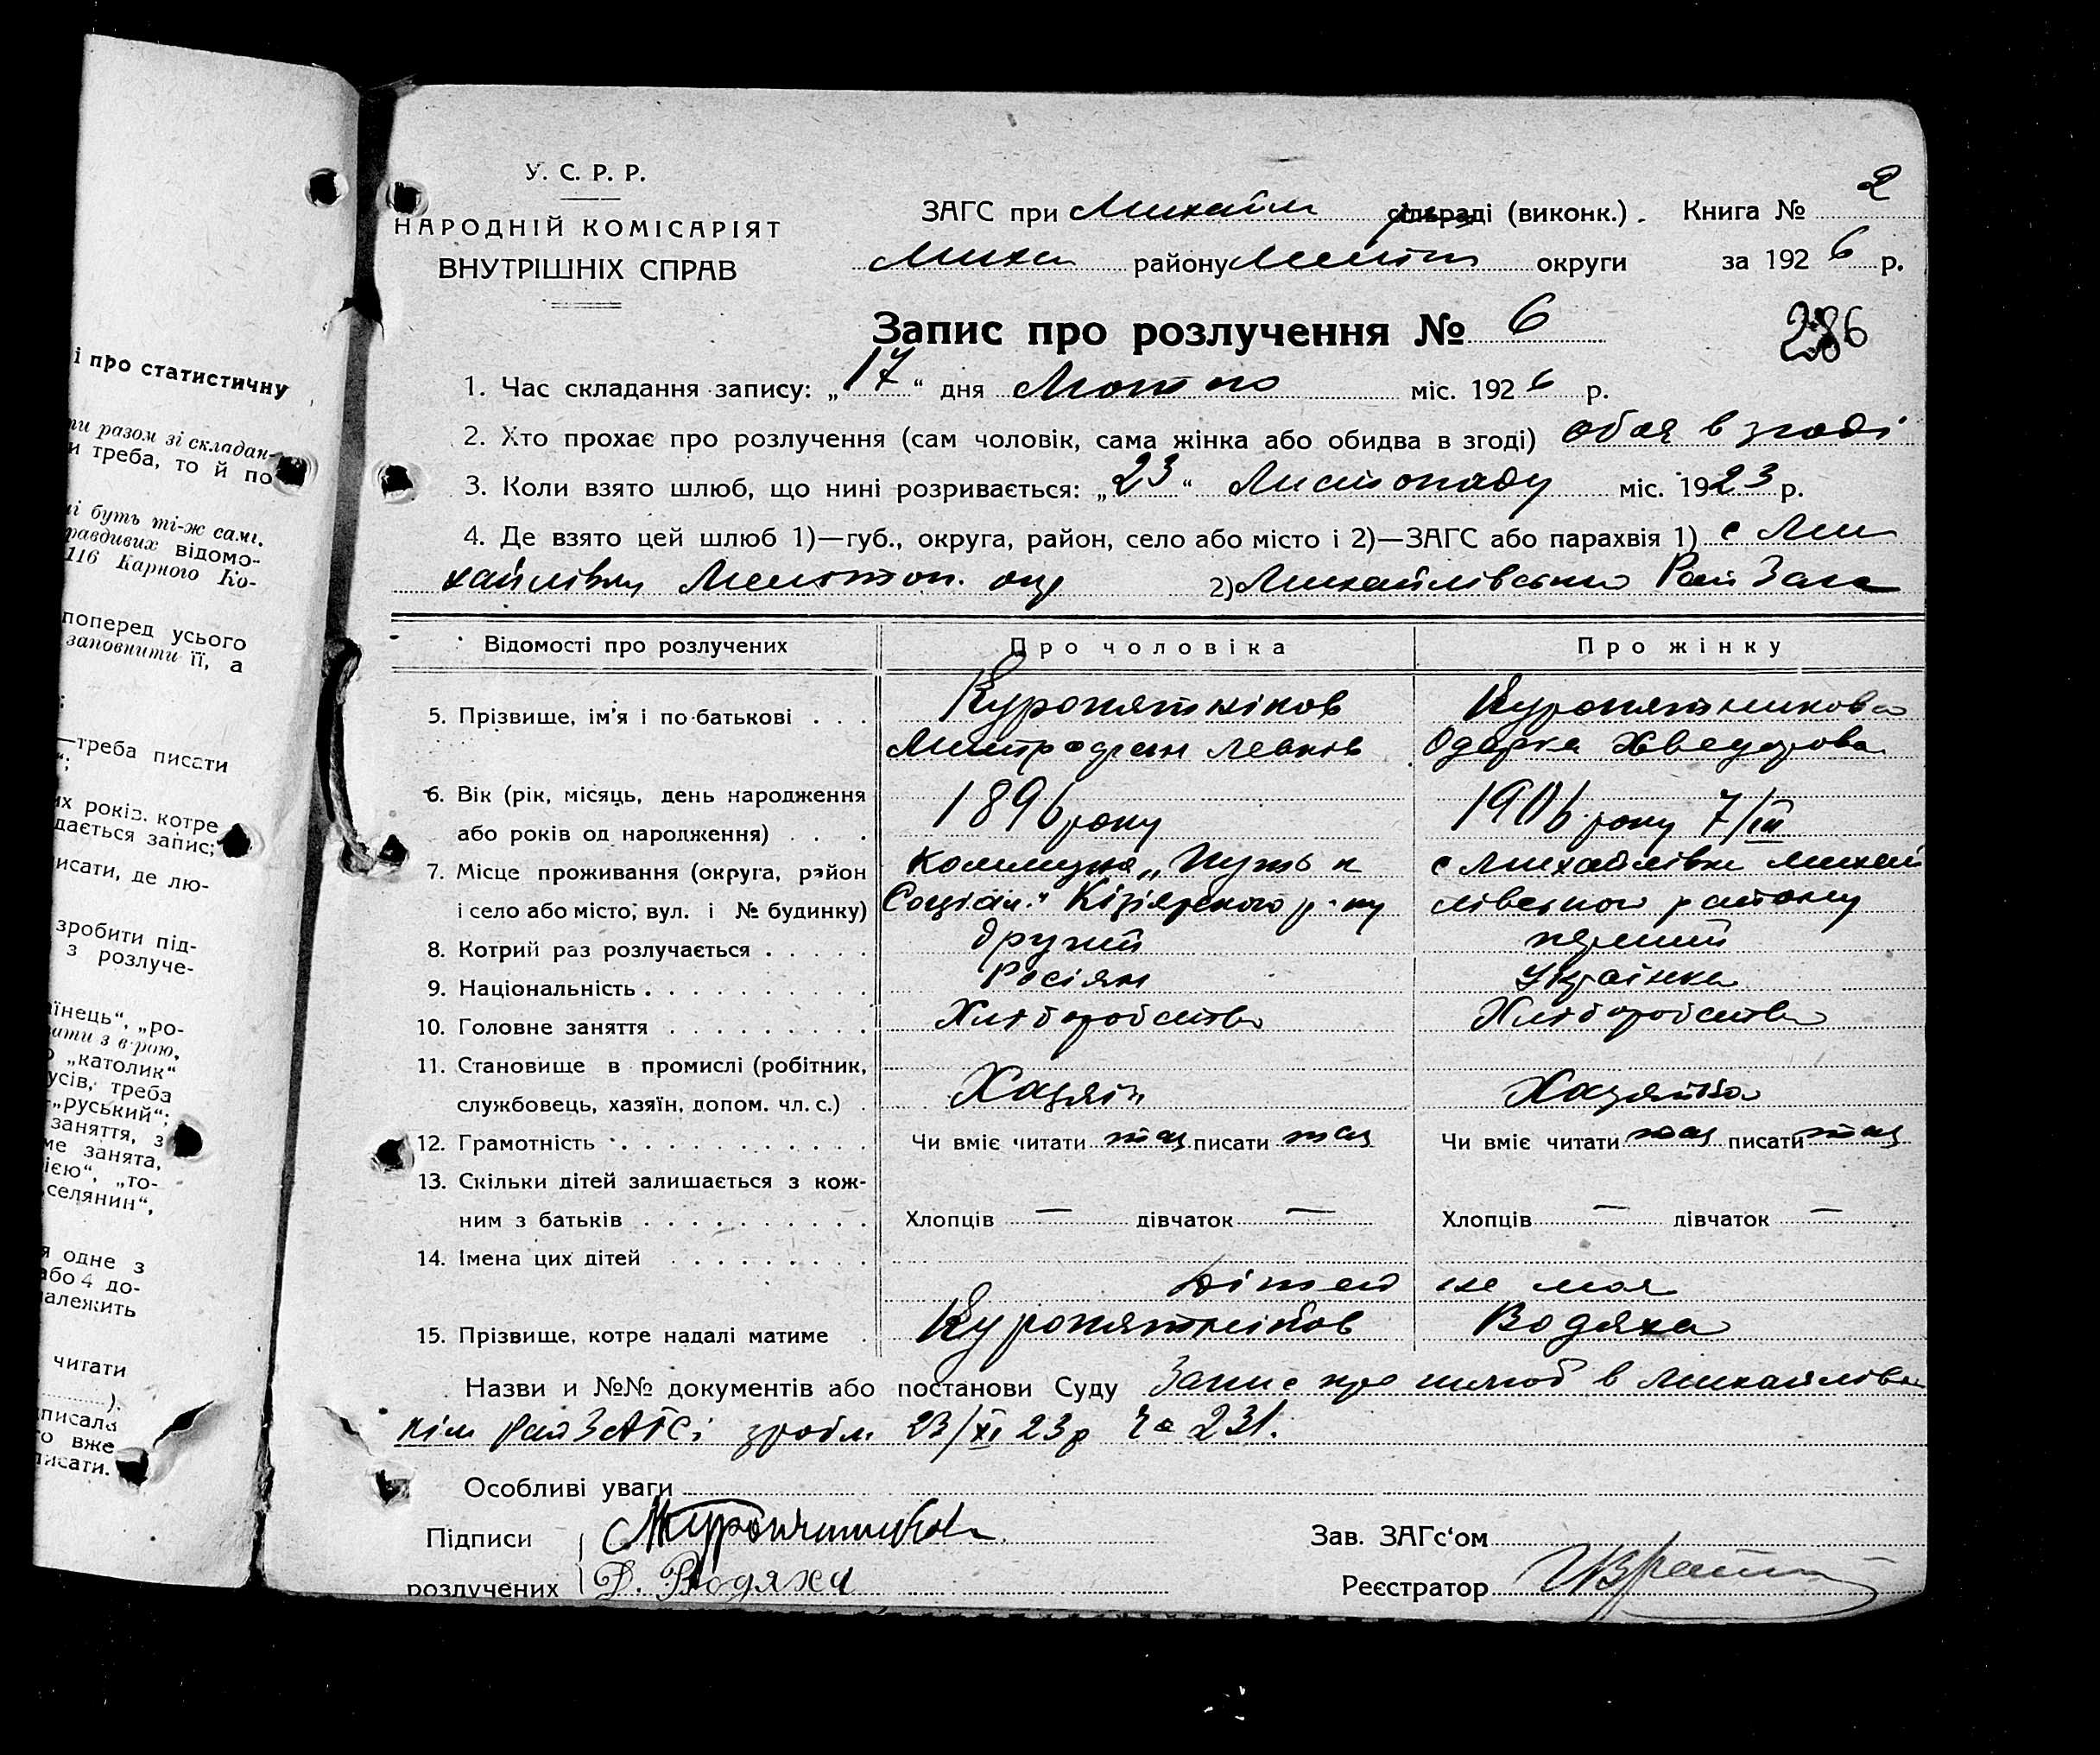 У. С. Р. Р.
НАРОДНІЙ КОМІСАРІЯТ
ВНУТРІШНІХ СПРАВ
ЗАГС при Михайл сільраді (виконк.). Книга № 2
Миха району Меліт округи за 1926 р.
Запис про розлучення № 6
286
1. Час складання запису: „17“ дня Лютого міс. 1926 р.
2. Хто прохає про розлучення (сам чоловік, сама жінка або обидва в згоді) обоя в згоді
3. Коли взято шлюб, що нині розривається: „23“ Листопаду міс. 1923 р.
4. Де взято цей шлюб 1)—губ., округа, район, село або місто і 2)—ЗАГС або парахвія 1) с Ми
хайлівку Мелітоп. окр 2) Михайлівськи Рай Загс
Відомості про розлучених Про чоловіка Про жінку
5. Прізвище, ім'я і по-батькові . . . Куропятніков Куропятникова
Митрофан Левков Одарка Хведорова
6. Вік (рік, місяць, день народження
або років од народження) . . 1896 року 1906 року 7/III
7. Місце проживання (округа, район Коммуна „Путь к с Михайлівки Михай
і село або місто, вул. і № будинку) Соціал.“ Кізіярского р-ну лівського району
8. Котрий раз розлучається . . . . . другий перший
9. Національність . . . . . . . . . . Росіян Українка
10. Головне заняття . . . . . . . . . Хліборобство Хліборобство
11. Становище в промислі (робітник,
службовець, хазяїн, допом. чл. с.) . Хазяін Хазяйка
12. Грамотність . . . . . . . . . . . Чи вміє читати так писати так Чи вміє читати так писати так
13. Скільки дітей залишається з кож-
ним з батьків . . . . . . . . . . Хлопців — дівчаток — Хлопців — дівчаток —
14. Імена цих дітей . . . . . . . . .
Дітей не має
15. Прізвище, котре надалі матиме . Куропятніков Водяха
Назви и №№ документів або постанови Суду Запис про шлюб в Михайлівс
кім РайЗАГСі зробл. 23/XI 23р За 231.
Особливі уваги
Підписи Куропятников
розлучених Д. Водяха
Зав. ЗАГс‘ом
Реєстратор
і про статистичну
ти разом зі складан-
и треба, то й по
ні буть ті-ж самі.
равдивих відомо-
116 Карного Ко-
поперед усього
заповнити її, а
—треба писати
их років. котре
дається запис;
исати, де лю-
зробити під-
з розлуче-
їнець“, „ро-
„католик“
усів, треба
„руський“;
заняття, з
ме занята,
ією“, „то-
селянин“,
я одне з
або 4 до-
алежить
читати
).
писала
о вже
писати.